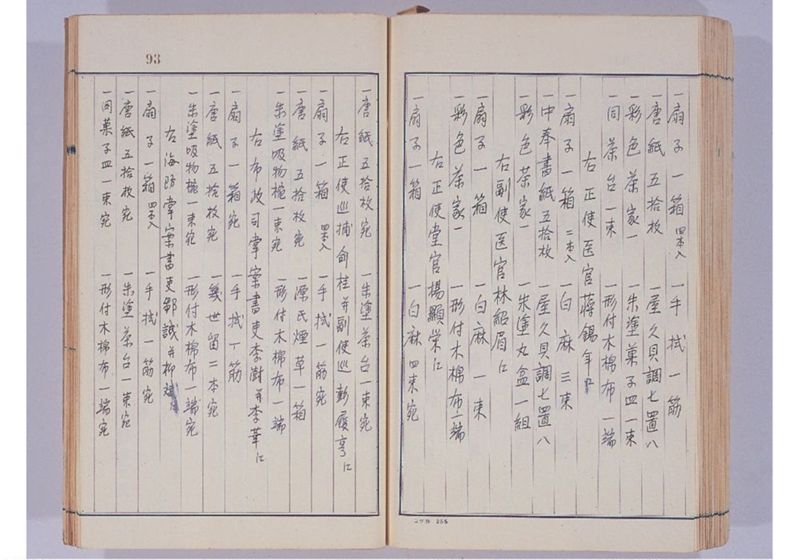 一扇子一箱 四本入 一手拭一筋
一唐紙五拾枚 一屋久貝調七置八
一彩色茶家一 一朱塗菓子皿一束
一同茶台一束 一形付木棉布一端
右正使医官蒋錫年ニ
一扇子一箱 二本入 一白麻三束
一中奉書紙五拾枚 一屋久貝調七置八
一彩色茶家一 一朱塗丸盒一組
右副使医官林紹眉ニ
一扇子一箱 一白麻一束
一彩色茶家一 一形付木棉布一端
右正使堂官楊顯栄ニ
一扇子一箱 一白麻四束宛
一唐紙五拾枚宛 一朱塗茶台一束宛
右正使巡捕俞桂并副使巡彭履亨ニ
一扇子一箱 四本入 一手拭一筋宛
一唐紙五拾枚宛 一源氏煙草一箱
一朱塗吸物椀一束宛 一形付木棉布一端
右布政司掌案書吏李澍并李華ニ
一扇子一箱宛 一手拭一筋
一唐紙五拾枚宛 一幾世留二本宛
一朱塗吸物椀一束宛 一形付木棉布一端宛
右海防掌案書吏鄒誠并柳
一扇子一箱 四本入 一手拭一筋宛
一唐紙五拾枚宛 一朱塗茶台一束宛
一同菓子皿一束宛 一形付木棉布一端宛
93